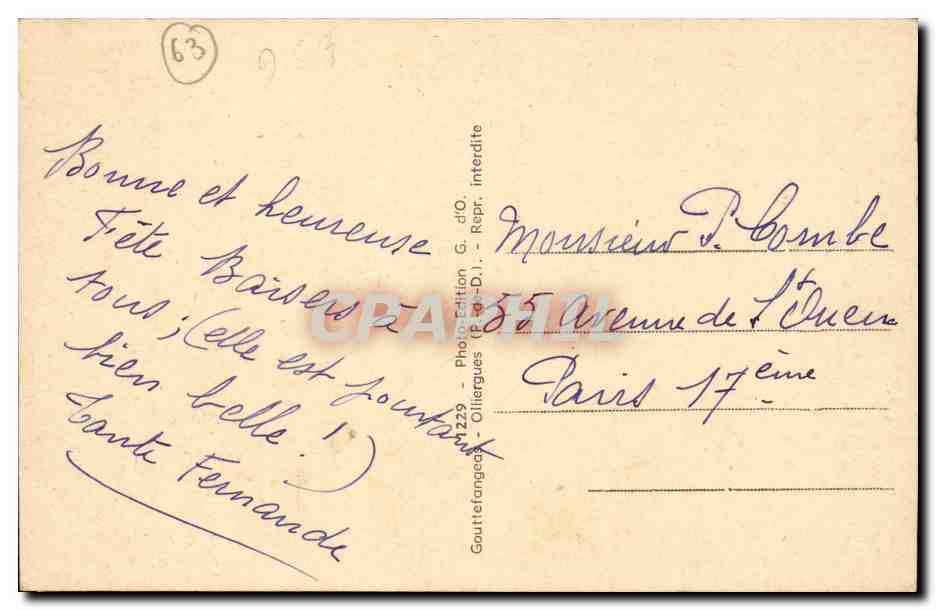 63
Bonne et heureuse
Fête Baisers à
tous ; (elle est pourtant
bien belle !)
Tante Fernande
1229 - Photo-Edition G. d'O.
Gouttefangeas - Olliergues (P.-de-D.). - Repr. interdite
Monsieur P. Combe
55 Avenue de St Ouen
Paris 17ème
CPAPHIL